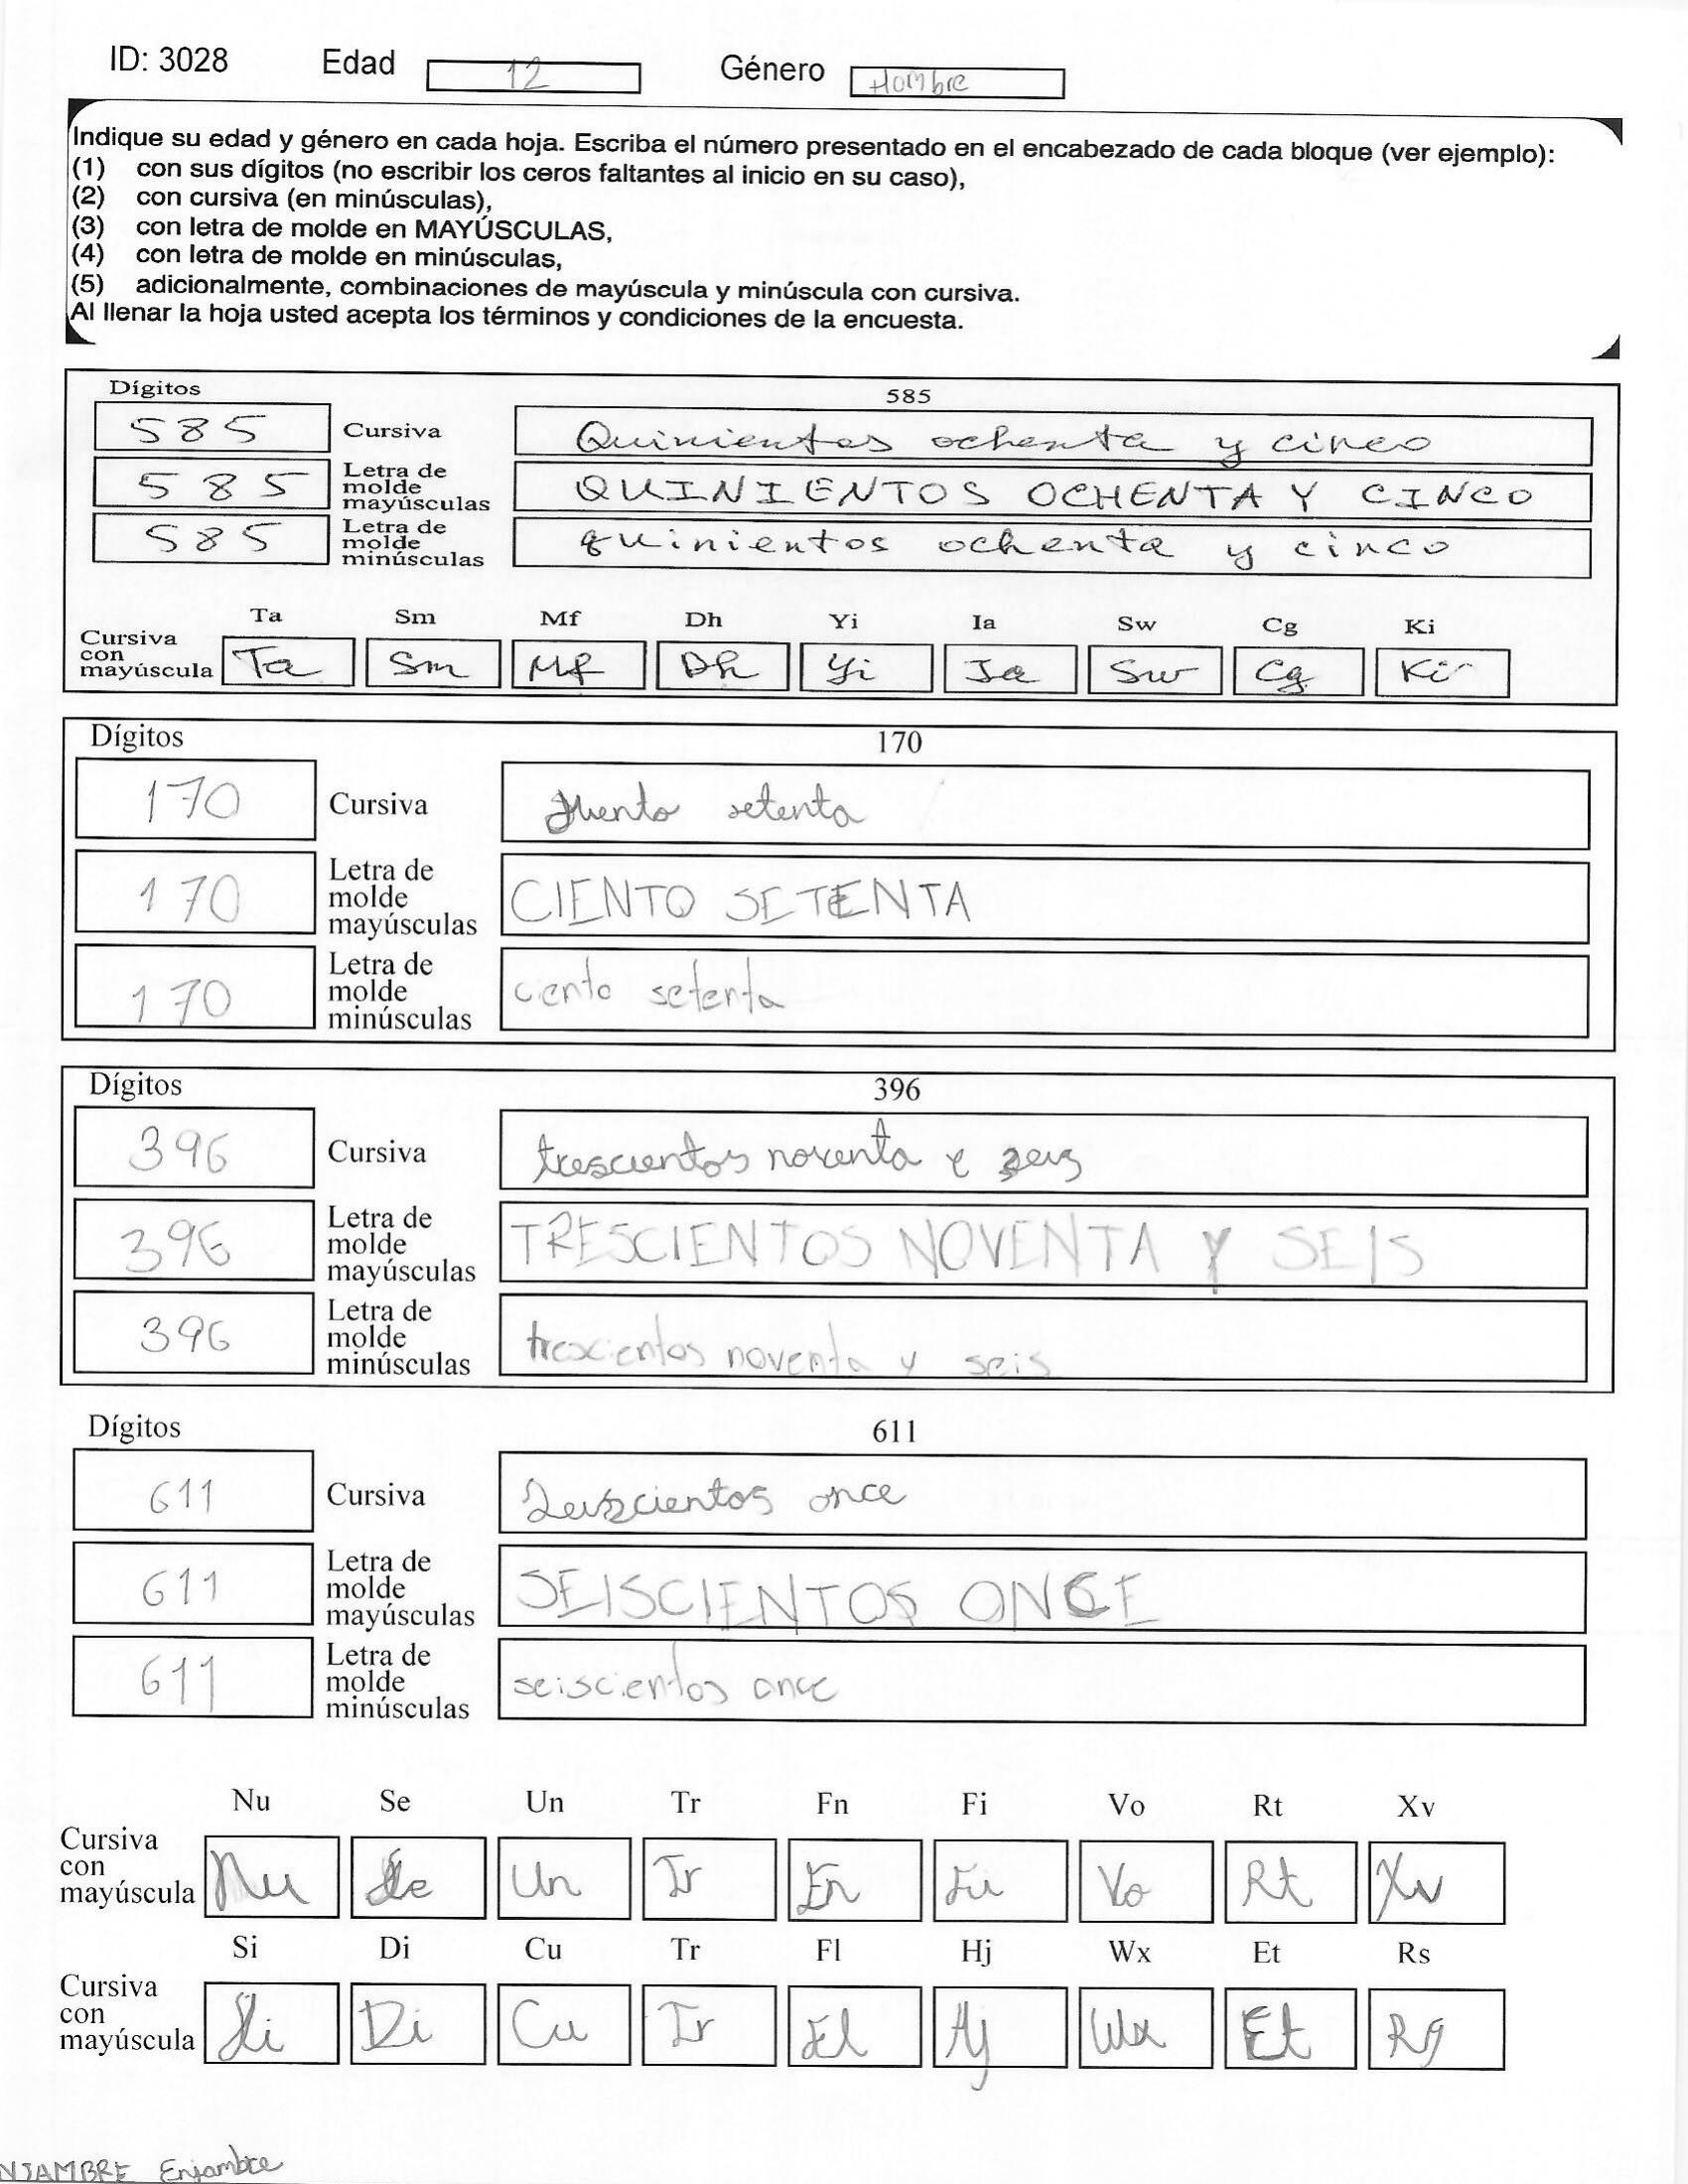 ID: 3028 Edad 12 Género Hombre
Indique su edad y género en cada hoja. Escriba el número presentado en el encabezado de cada bloque (ver ejemplo):
(1) con sus dígitos (no escribir los ceros faltantes al inicio en su caso),
(2) con cursiva (en minúsculas),
(3) con letra de molde en MAYÚSCULAS,
(4) con letra de molde en minúsculas,
(5) adicionalmente, combinaciones de mayúscula y minúscula con cursiva.
Al llenar la hoja usted acepta los términos y condiciones de la encuesta.
Dígitos 585
585 Cursiva Quinientos ochenta y cinco
585 Letra de molde mayúsculas QUINIENTOS OCHENTA Y CINCO
585 Letra de molde minúsculas quinientos ochenta y cinco
Ta Sm Mf Dh Yi Ia Sw Cg Ki
Cursiva con mayúscula Ta Sm Mf Dh Yi Ia Sw Cg Ki
Dígitos 170
170 Cursiva setenta
170 Letra de molde mayúsculas CIENTO SETENTA
170 Letra de molde minúsculas ciento setenta
Dígitos 396
396 Cursiva trescientos noventa y seis
396 Letra de molde mayúsculas TRESCIENTOS NOVENTA Y SEIS
396 Letra de molde minúsculas trescientos noventa y seis
Dígitos 611
611 Cursiva Seiscientos once
611 Letra de molde mayúsculas SEISCIENTOS ONCE
611 Letra de molde minúsculas seiscientos once
Nu Se Un Tr Fn Fi Vo Rt Xv
Cursiva con mayúscula Nu Se Un Tr Fn Fi Vo Rt Xv
Si Di Cu Tr Fl Hj Wx Et Rs
Cursiva con mayúscula Si Di Cu Tr Fl Hj Wx Et Rs
NJAMBRE Enjambre